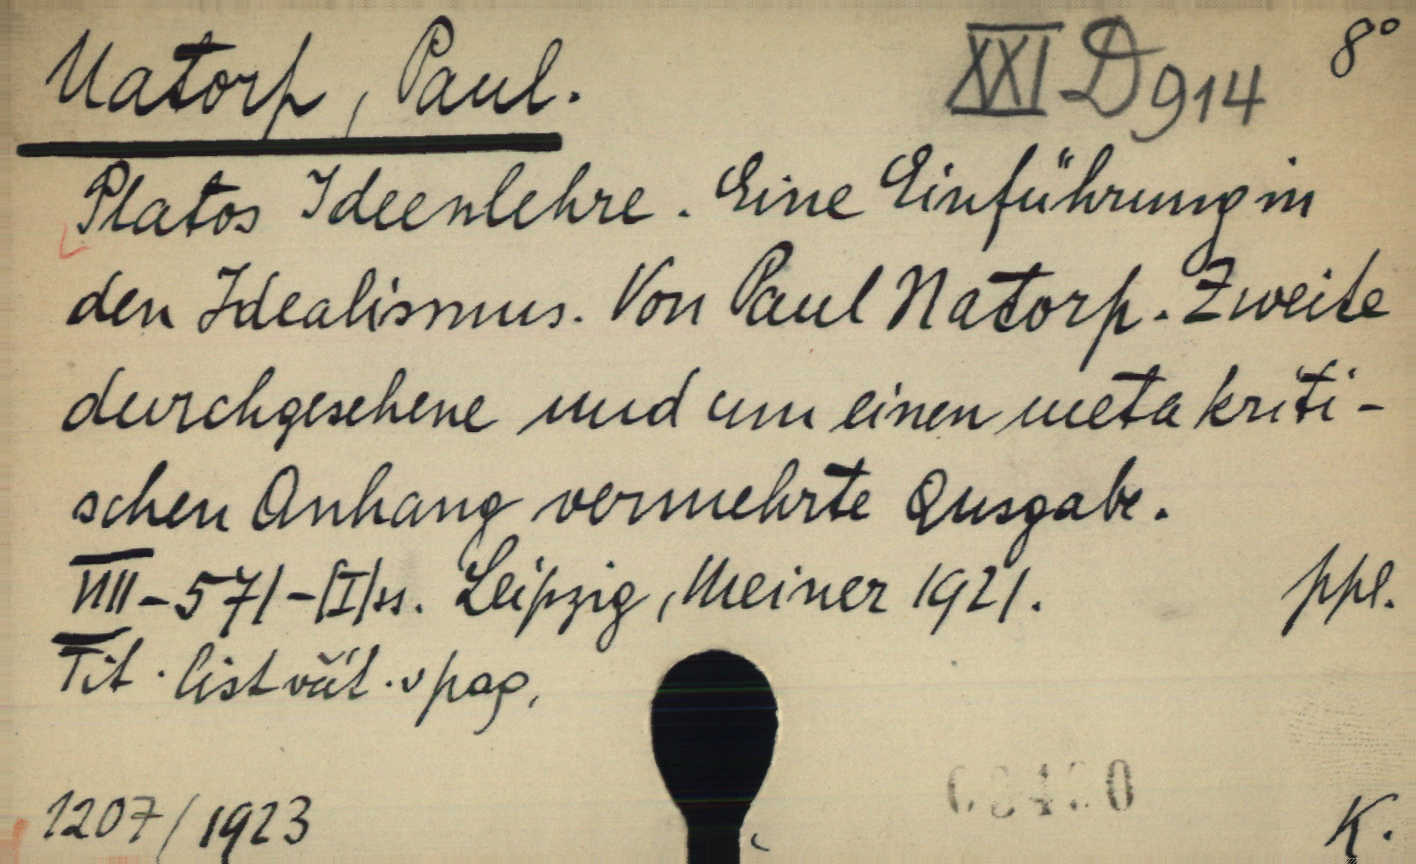 Natorp, Paul. XXI D 914 8°
Platos Ideenlehre. Eine Einführung in
den Idealismus. Von Paul Natorp. Zweite
durchgesehene und um einen metakriti-
schen Anhang vermehrte Ausgabe.
VIII-571-[I]ss. Leipzig, Meiner 1921. ppl.
Tit. list vať. v pag.
1207/1923 K.